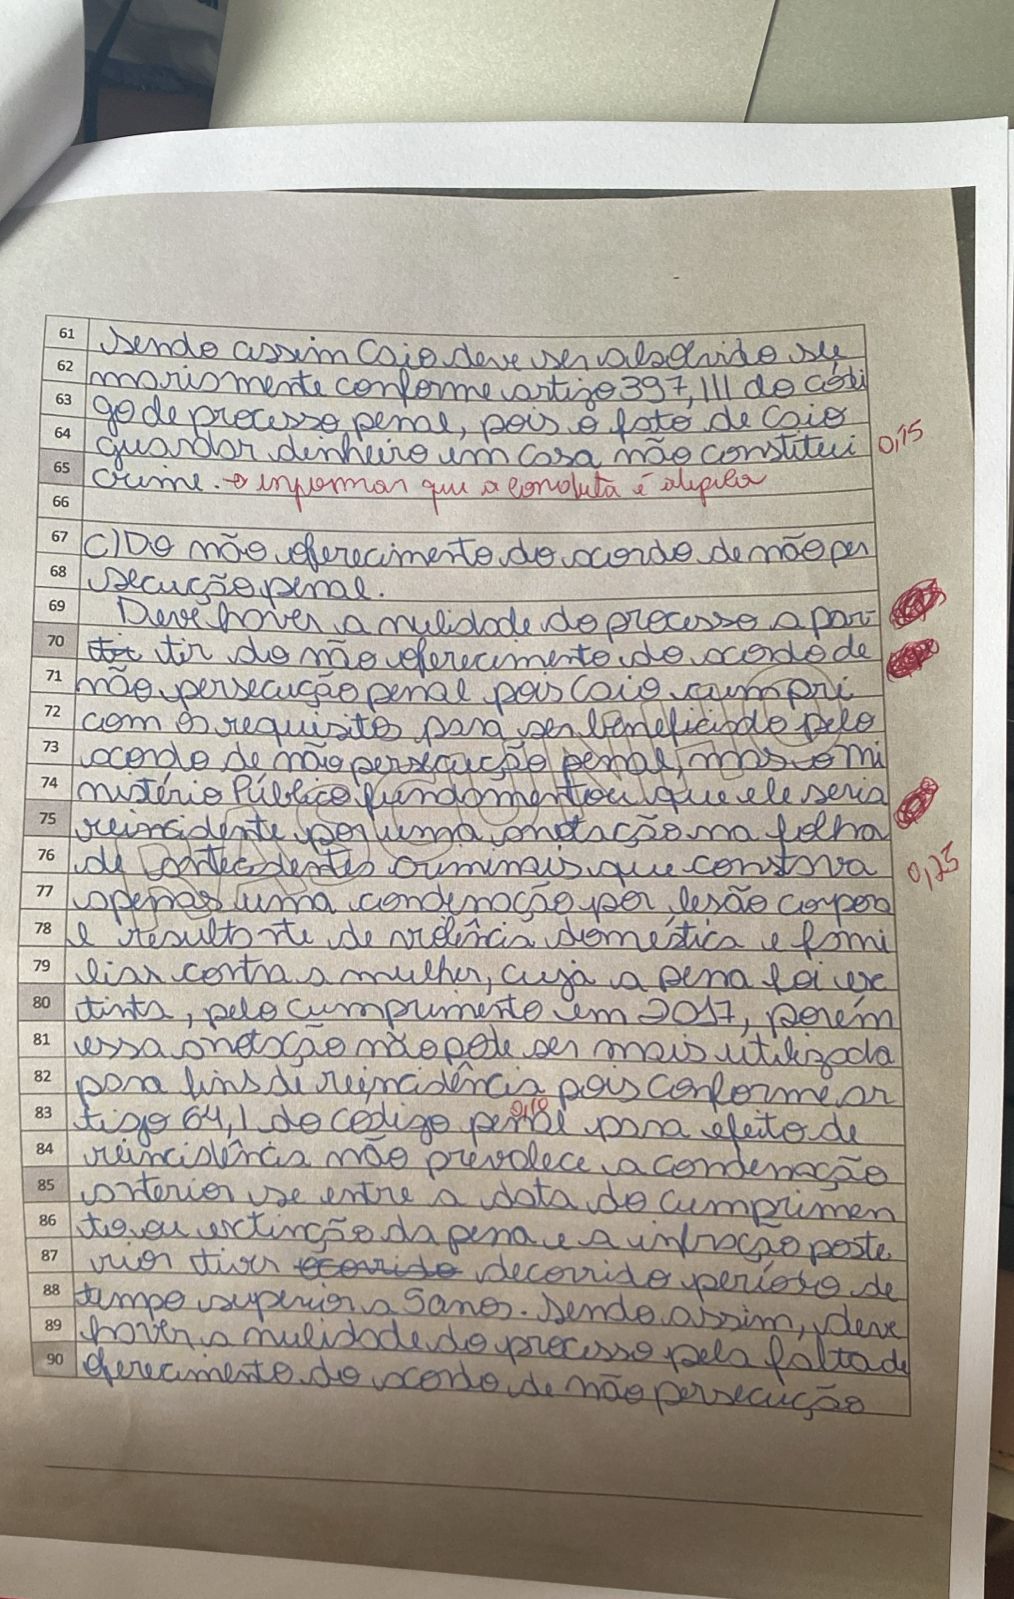 61 Sendo assim Caio deve ser absolvido su
62 mariamente conforme artigo 397, III do códi
63 go de processo penal, pois o fato de Caio
64 guardar dinheiro em casa não constitui 0,15
65 crime. → informar que a conduta é atípica
66
67 C) Do não oferecimento do acordo de não per
68 secução penal.
69 Deve haver a nulidade do processo a par-
70 tir do não oferecimento do acordo de
71 não persecução penal pois Caio cumpri
72 com os requisitos para ser beneficiado pelo
73 acordo de não persecução penal, mas o mi
74 nistério Público fundamentou que ele seria
75 reincidente por uma anotação na folha
76 de antecedentes criminais que constava 0,25
77 apenas uma condenação por lesão corpora
78 l resultante de violência doméstica e fami
79 liar contra a mulher, cuja a pena foi ex
80 tinta, pelo cumprimento em 2017, porém
81 essa anotação não pode ser mais utilizada
82 para fins de reincidência pois conforme ar
83 tigo 64, I do código penal para efeito de 0,10
84 reincidência não prevalece a condenação
85 anterior se entre a data do cumprimen
86 to ou extinção da pena e a infração poste
87 rior tiver ocorrido decorrido período de
88 tempo superior a 5 anos. Sendo assim, deve
89 haver a nulidade do processo pela falta de
90 oferecimento do acordo de não persecução